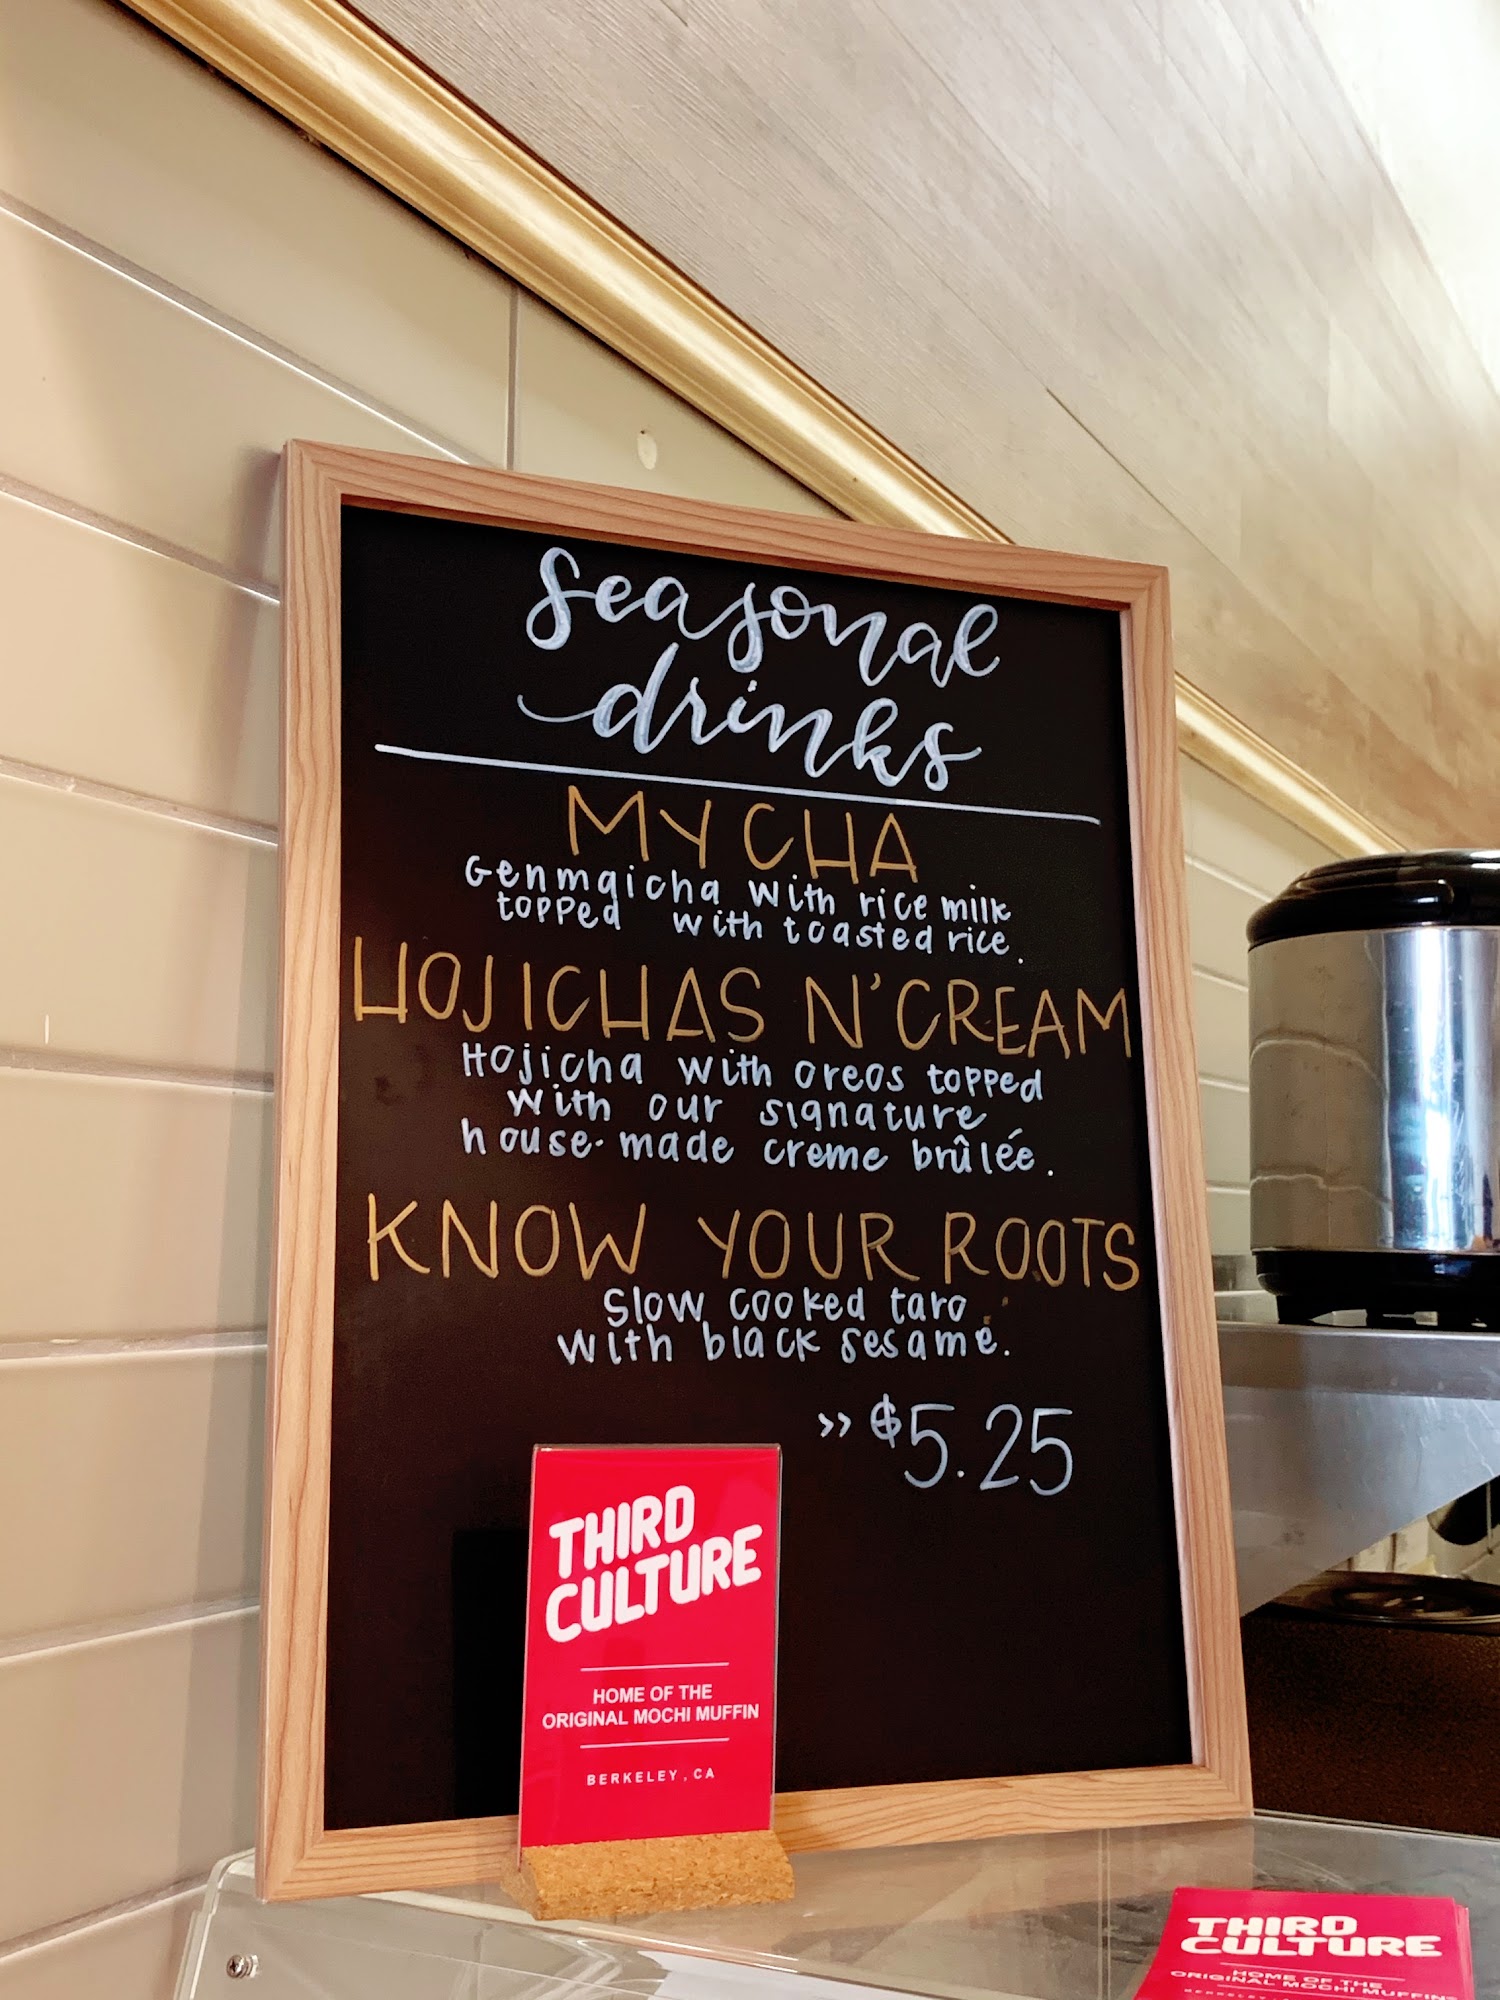 seasonal
drinks
MY CHA
Genmaicha with rice milk
topped with toasted rice.
HOJICHAS N' CREAM
Hojicha with oreos topped
with our signature
house-made creme brûlée.
KNOW YOUR ROOTS
Slow cooked taro
with black sesame.
>> $5.25
THIRD
CULTURE
HOME OF THE
ORIGINAL MOCHI MUFFIN
BERKELEY, CA
THIRD
CULTURE
HOME OF THE
ORIGINAL MOCHI MUFFIN